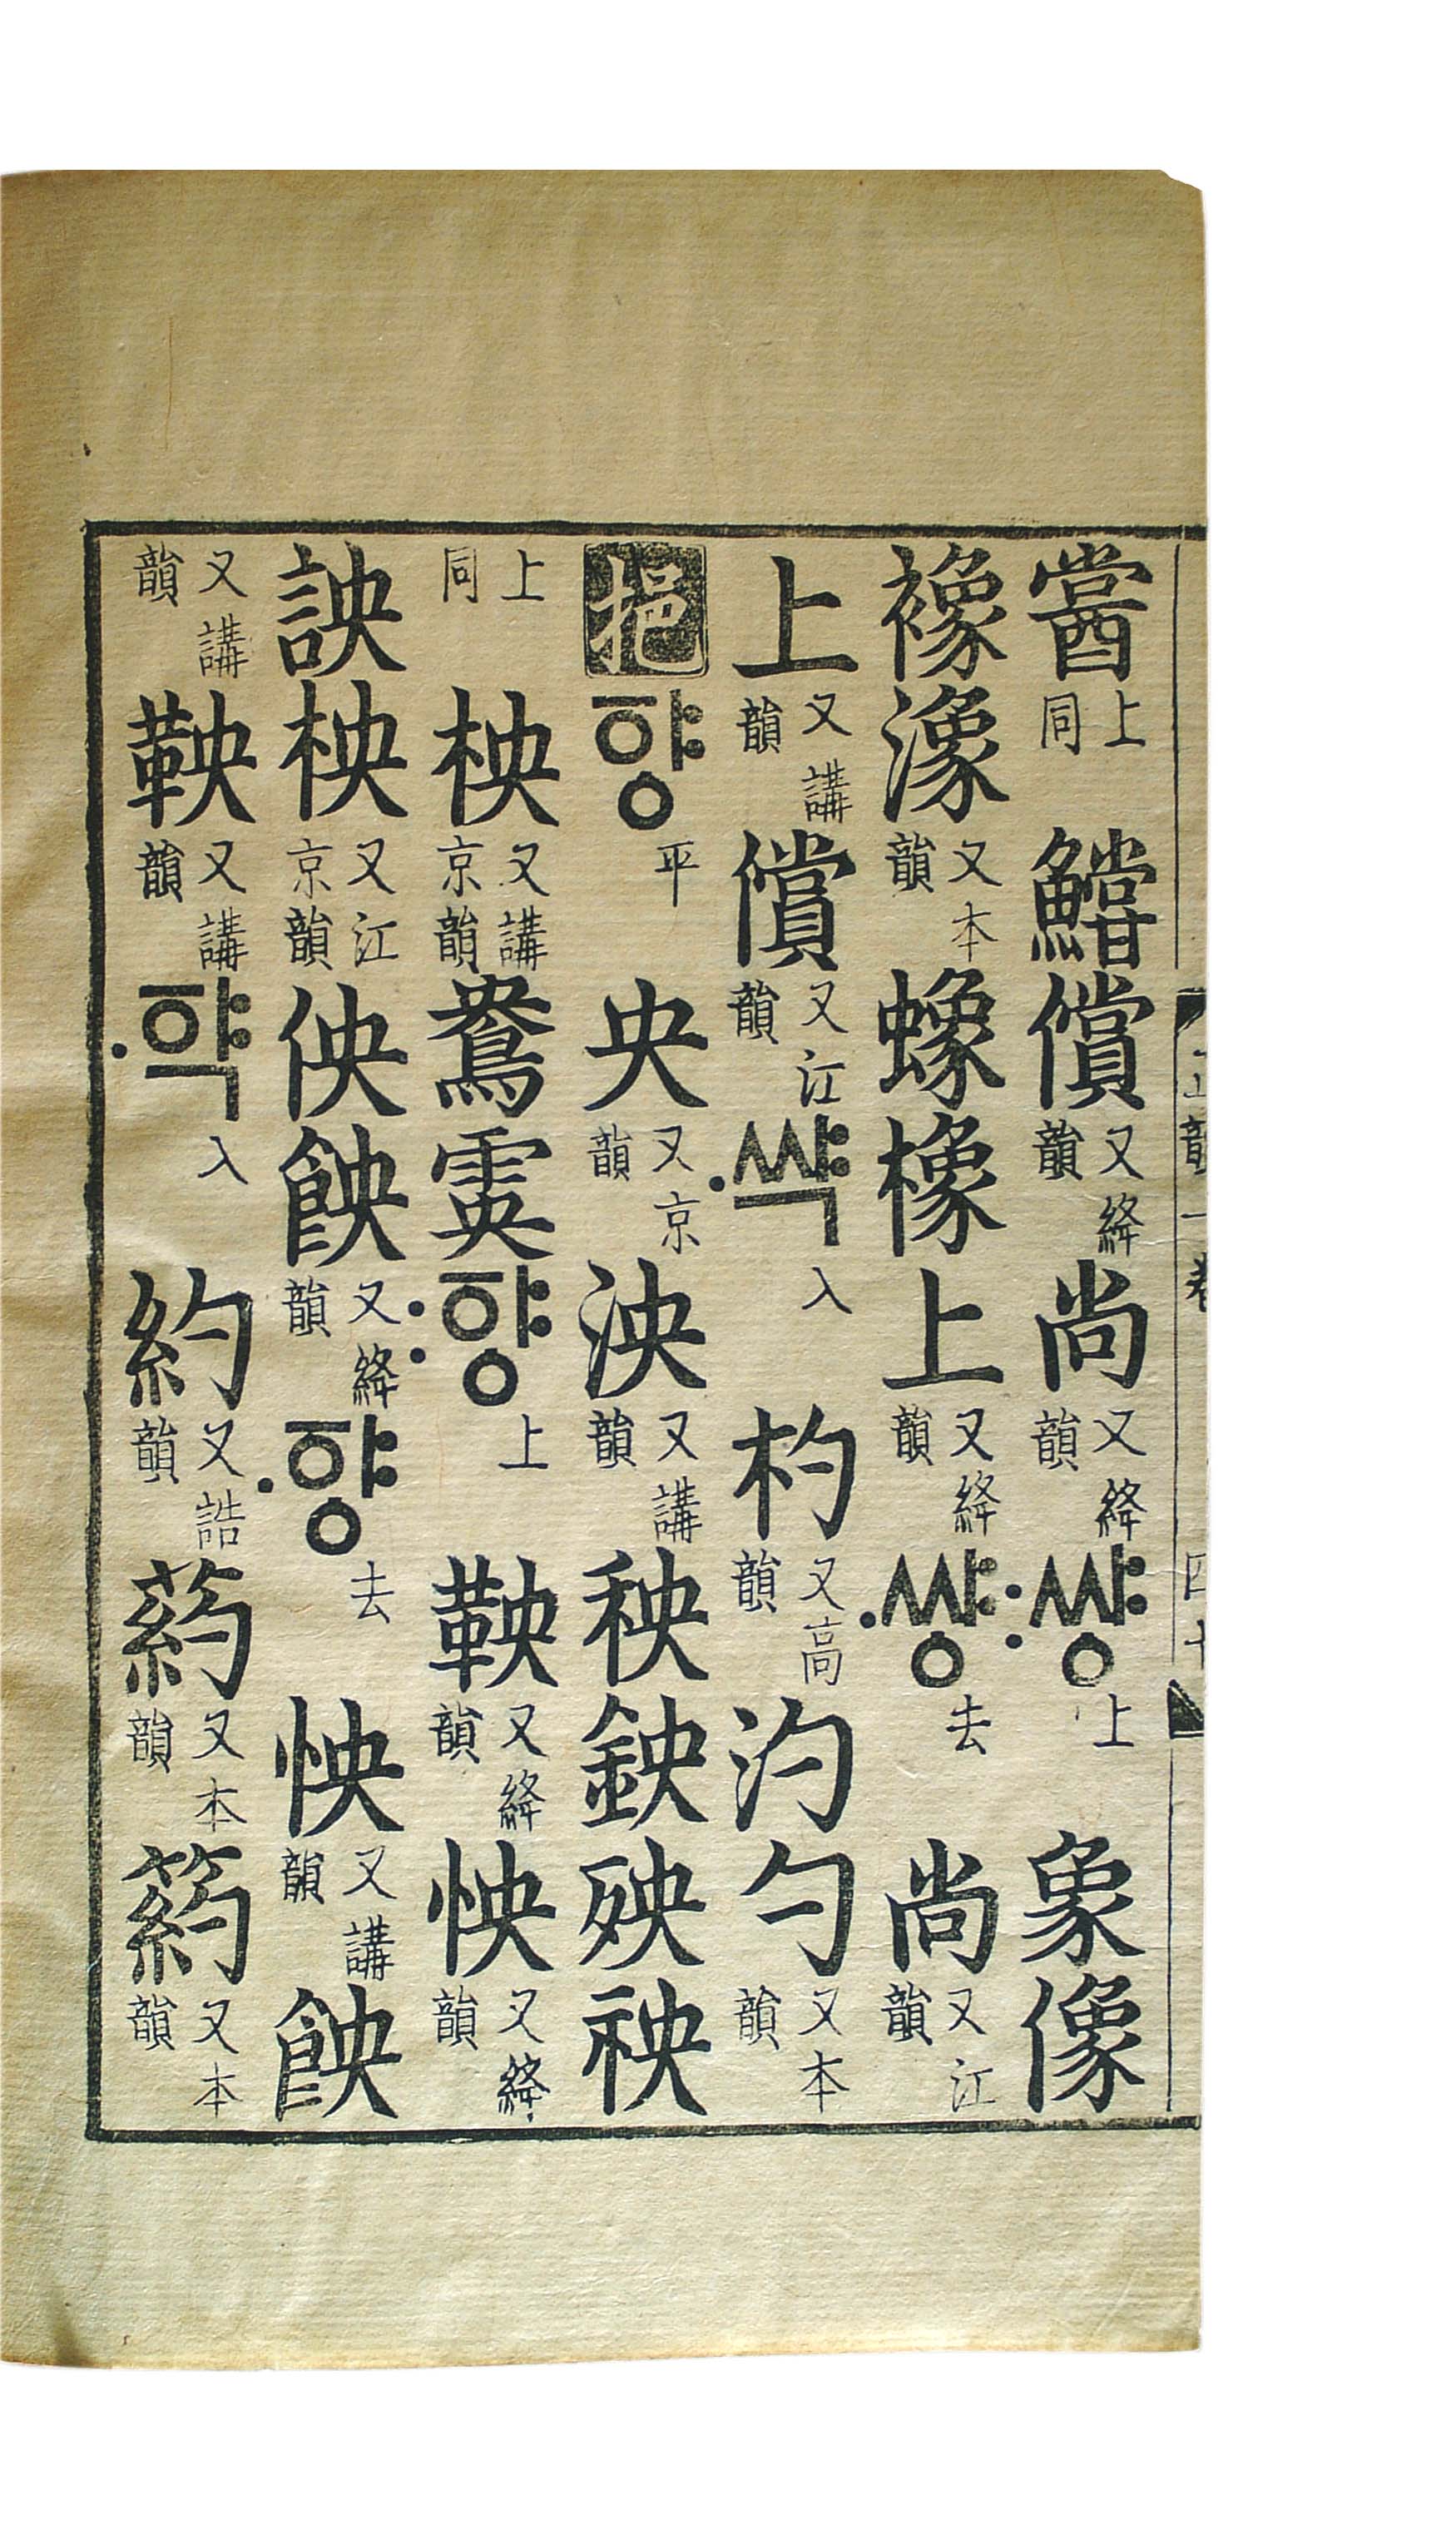 嘗上同鱨償又絳韻尚又絳韻〯쌰ᇰ上象像
襐潒又本韻蟓橡上又絳韻〮쌰ᇰ去尚又江韻
上又講韻償又江韻〮쌱入杓又高韻汋勺又本韻
挹ᅙᅣᇰ平央又京韻泱又講韻秧鉠殃䄃
上同柍又講京韻鴦雵〯ᅙᅣᇰ上鞅又絳韻怏又絳韻
詇柍又江京韻佒䬬又絳韻〮ᅙᅣᇰ去怏又講韻䬬
又講韻鞅又講韻〮ᅙᅣᆨ入約又誥韻葯又本韻箹又本韻